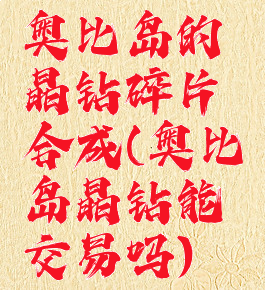 奥比岛的
晶钻碎片
合成(奥比
岛晶钻能
交易吗)